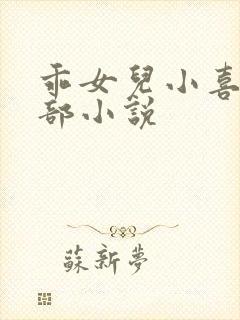 乖女兒小喜
部小說
蘇新夢